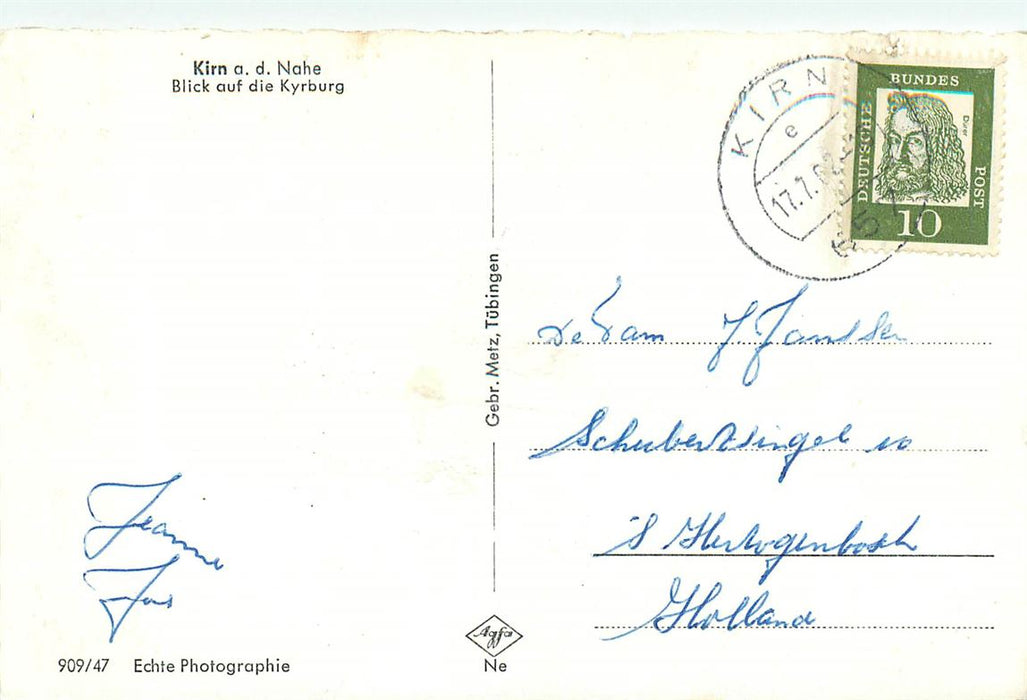 Kirn a. d. Nahe
Blick auf die Kyrburg
KIRN
e
17.7.62
DEUTSCHE
BUNDES
POST
Dürer
10
De Fam J. Janssen
Schubertsingel 10
S Hertogenbosch
Holland
Gebr. Metz, Tübingen
Jeanne
Jos
909/47 Echte Photographie
Agfa
Ne